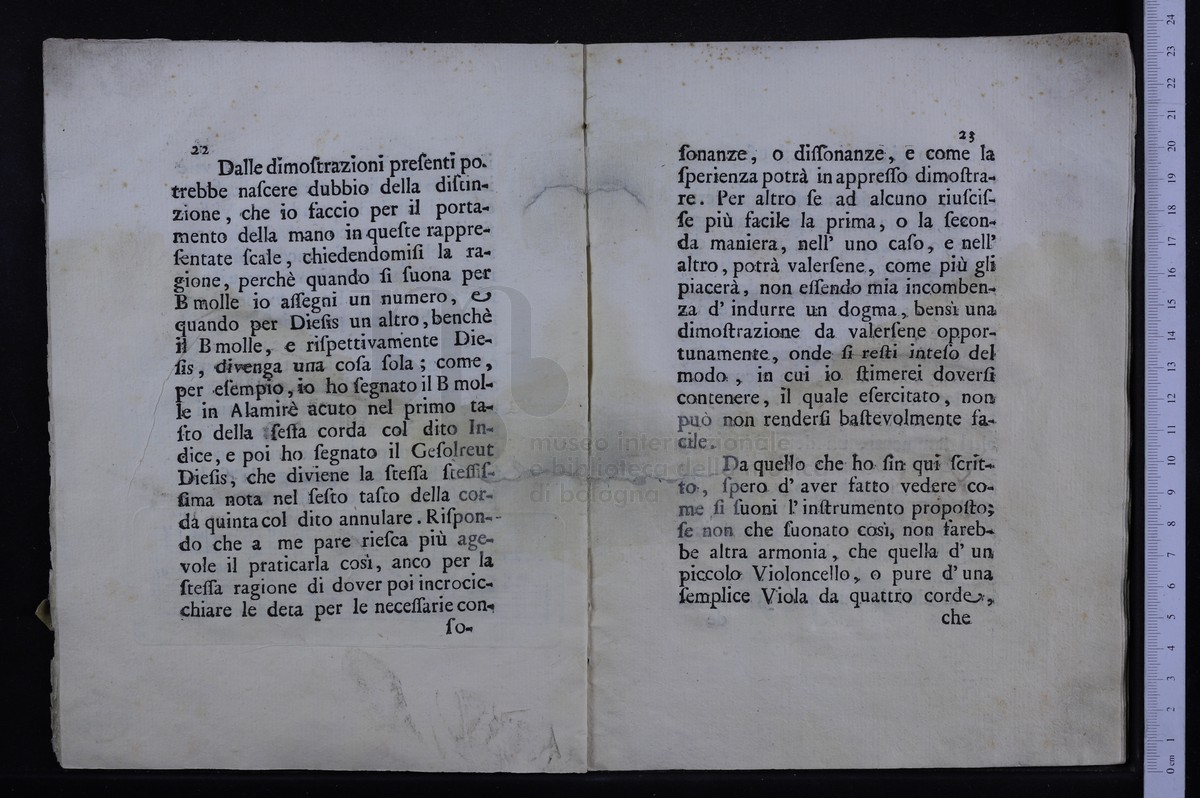 22
Dalle dimoſtrazioni preſenti po-
trebbe naſcere dubbio della diſtin-
zione, che io faccio per il porta-
mento della mano in queſte rappre-
ſentate ſcale, chiedendomiſi la ra-
gione, perchè quando ſi ſuona per
B molle io aſſegni un numero, &
quando per Dieſis un altro, benchè
il B molle, e riſpettivamente Die-
ſis, divenga una coſa ſola; come,
per eſempio, io ho ſegnato il B mol-
le in Alamirè acuto nel primo ta-
ſto della ſeſta corda col dito In-
dice, e poi ho ſegnato il Geſolreut
Dieſis, che diviene la ſteſſa ſteſſiſ-
ſima nota nel ſeſto taſto della cor-
da quinta col dito annulare. Riſpon-
do che a me pare rieſca più age-
vole il praticarla così, anco per la
ſteſſa ragione di dover poi incrocic-
chiare le deta per le neceſſarie con-
ſo-
23
ſonanze, o diſſonanze, e come la
ſperienza potrà in appreſſo dimoſtra-
re. Per altro ſe ad alcuno riuſciſ-
ſe più facile la prima, o la ſecon-
da maniera, nell' uno caſo, e nell'
altro, potrà valerſene, come più gli
piacerà, non eſſendo mia incomben-
za d' indurre un dogma, bensì una
dimoſtrazione da valerſene oppor-
tunamente, onde ſi reſti inteſo del
modo, in cui io ſtimerei doverſi
contenere, il quale eſercitato, non
può non renderſi baſtevolmente fa-
cile.
Da quello che ho ſin qui ſcrit-
to, ſpero d' aver fatto vedere co-
me ſi ſuoni l' inſtrumento propoſto;
ſe non che ſuonato così, non fareb-
be altra armonia, che quella d' un
piccolo Violoncello, o pure d' una
ſemplice Viola da quattro corde,
che
museo internazionale
e biblioteca della
di bologna
0 cm 1 2 3 4 5 6 7 8 9 10 11 12 13 14 15 16 17 18 19 20 21 22 23 24